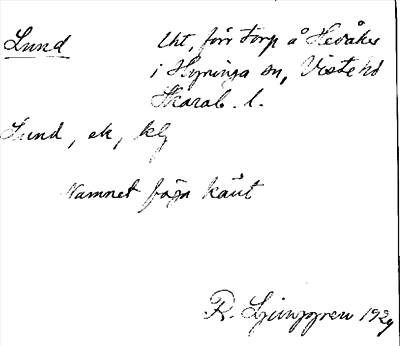 Lund Lht, förr torp å Hedåker
i Hyringa sn, Viste hd
Skarab. l.
Lund, ek, klg
Namnet föga känt
R. Ljunggren 1929